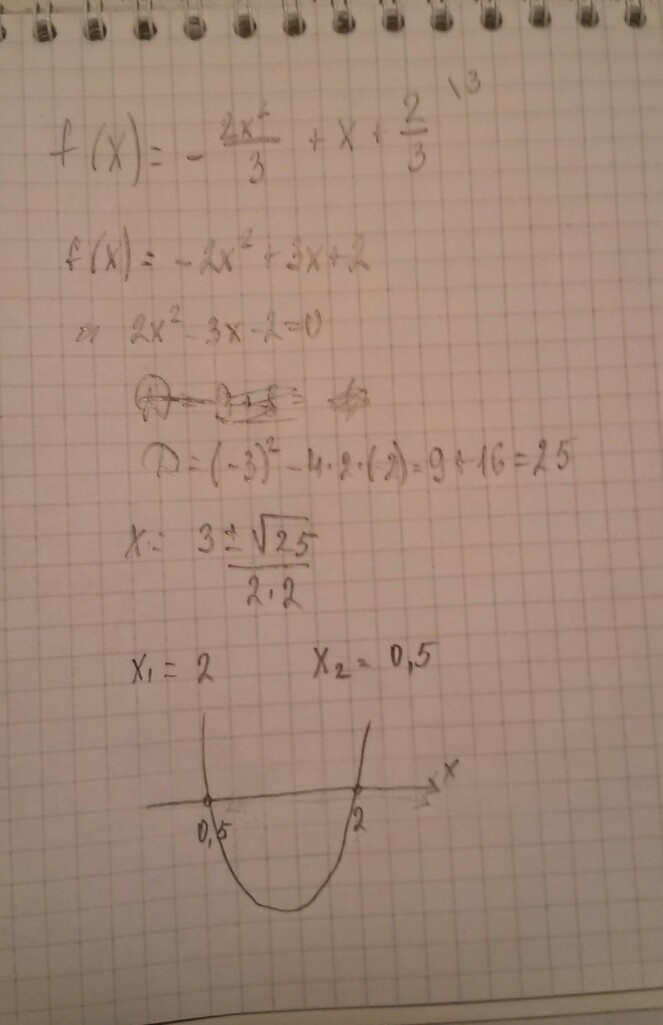 f(x) = - 2x²/3 + x + 2/3 \3
f(x) = -2x² + 3x + 2
2x² - 3x - 2 = 0
D = (-3)² - 4·2·(-2) = 9 + 16 = 25
x = 3 ± √25 / 2·2
x₁ = 2 x₂ = 0,5
x
0,5 2